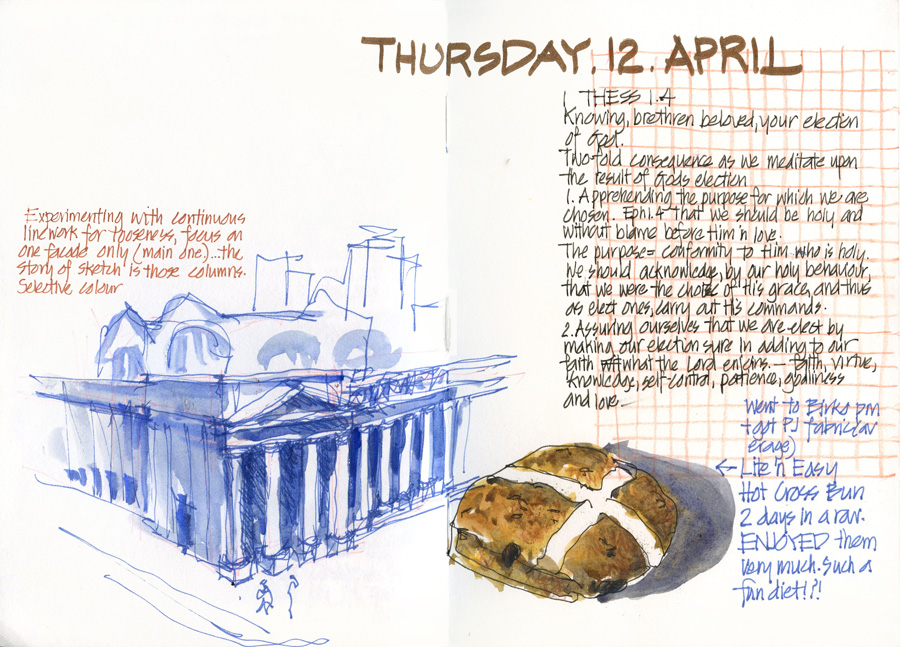 THURSDAY. 12. APRIL
1 THESS 1.4
Knowing, brethren beloved, your election
of God.
Two-fold consequence as we meditate upon
the result of Gods election
1. Apprehending the purpose for which we are
chosen. Eph1.4 that we should be holy and
without blame before Him in love.
The purpose = conformity to Him who is holy.
We should acknowledge, by our holy behaviour,
that we were the choice of His grace, and thus
as elect ones, carry out His commands.
2. Assuring ourselves that we are elect by
making our election sure in adding to our
faith what the Lord enjoins. — faith, virtue,
knowledge, self-control, patience, godliness
and love.
Experimenting with continuous
linework for looseness, focus on
one facade only (main one)...the
story of sketch is those columns.
Selective colour
Went to Birks pm
+ got PJ fabric (av
erage)
← Lite n Easy
Hot Cross Bun
2 days in a row.
ENJOYED them
very much. Such a
fun diet!?!